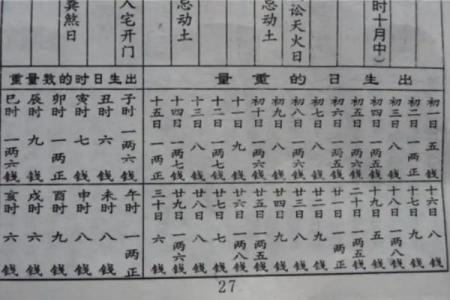 时十月中）
讼天火日
忌动土
忌动土
入宅开门
煞日
出生日的重量
初一日 五钱
初二日 一两正
初三日 八钱
初四日 一两五钱
初五日 一两六钱
初六日 一两五钱
初七日 八钱
初八日 一两六钱
初九日 八钱
初十日 一两六钱
十一日 九钱
十二日 一两七钱
十三日 八钱
十四日 一两七钱
十五日 一两正
十六日 八钱
十七日 九钱
十八日 一两八钱
十九日 五钱
二十日 一两五钱
廿一日 一两正
廿二日 九钱
廿三日 八钱
廿四日 九钱
廿五日 一两五钱
廿六日 一两八钱
廿七日 七钱
廿八日 八钱
廿九日 一两六钱
三十日 六钱
出生日时的数量重
子时 一两六钱
丑时 六钱
寅时 七钱
卯时 一两正
辰时 九钱
巳时 一两六钱
午时 一两正
未时 八钱
申时 八钱
酉时 九钱
戌时 六钱
亥时 六钱
27